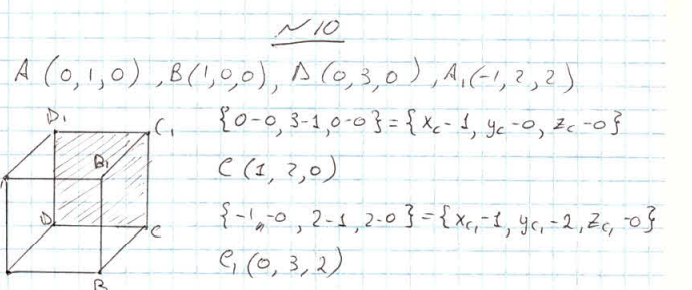 №10
A (0,1,0), B(1,0,0), D (0,3,0), A₁(-1,2,2)
D₁
C₁
{0-0, 3-1, 0-0} = {x_c-1, y_c-0, z_c-0}
B₁
C (1, 2, 0)
D
C
{-1-0, 2-1, 2-0} = {x_c₁-1, y_c₁-2, z_c₁-0}
C₁ (0, 3, 2)
B